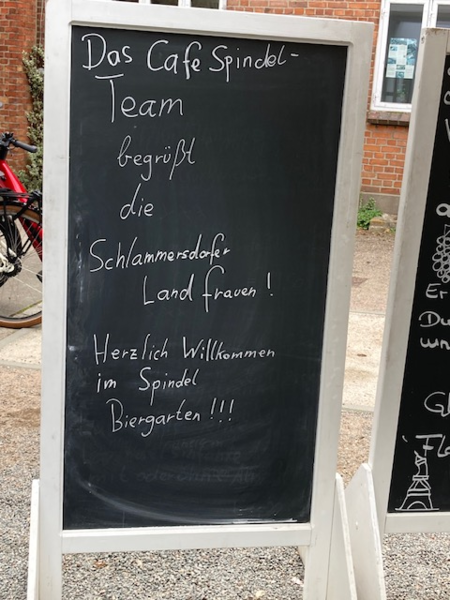 Das Cafe Spindel-
Team
begrüßt
die
Schlammersdorfer
Landfrauen!
Herzlich Willkommen
im Spindel
Biergarten!!!
Er
Du
un
Gl
Fl